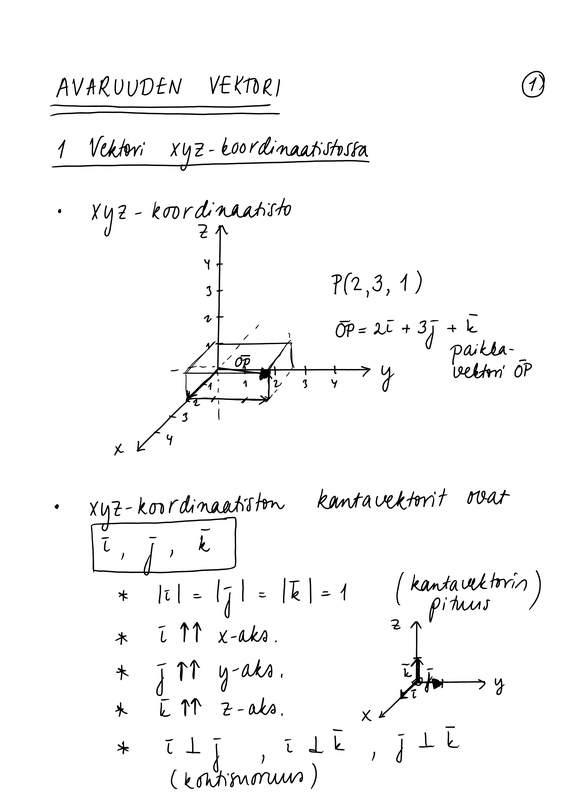 AVARUUDEN VEKTORI
1)
1 Vektori xyz-koordinaatistossa
• xyz-koordinaatisto
z
4
3
2
1
P(2, 3, 1)
O̅P̅ = 2i̅ + 3j̅ + k̅
paikka-
vektori O̅P̅
O̅P̅
1 2 3 4
y
1
2
3
4
x
• xyz-koordinaatiston kantavektorit ovat
i̅, j̅, k̅
* |i̅| = |j̅| = |k̅| = 1
(kantavektorin
pituus)
* i̅ ↑↑ x-aks.
* j̅ ↑↑ y-aks.
* k̅ ↑↑ z-aks.
z
k̅
j̅
i̅
y
x
* i̅ ⊥ j̅, i̅ ⊥ k̅, j̅ ⊥ k̅
(kohtisuoruus)